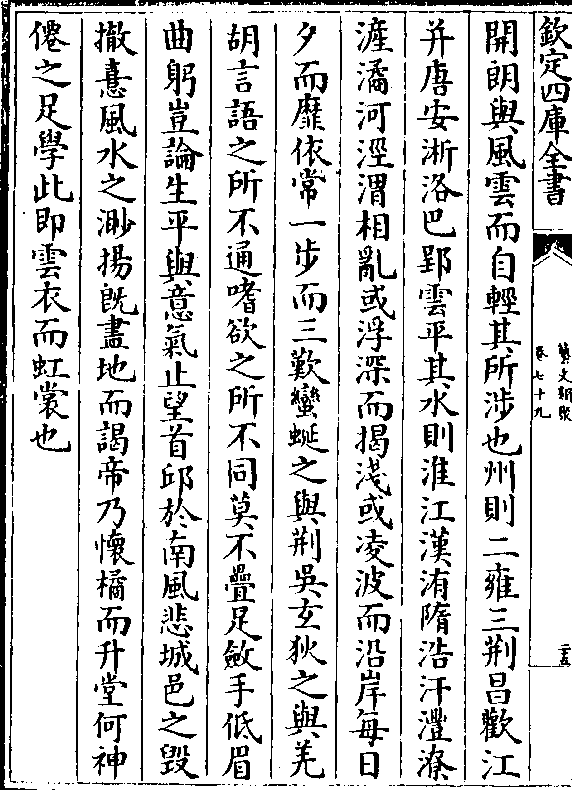 欽定四庫全書
藝文類聚
卷七十九
二十五
開朗與風雲而自輕其所涉也州則二雍三荆昌歡江
并唐安淅洛巴郢雲平其水則淮江漢洧隋浩汗灃潦
滻潏河涇渭相亂或浮深而揭淺或凌波而沿岸每日
夕而靡依常一歩而三歎蠻蜒之與荆吳玄狄之與羌
胡言語之所不通嗜欲之所不同莫不疊足斂手低眉
曲躬豈論生平與意氣止望首邱於南風悲城邑之毁
撤憙風水之渺揚旣盡地而謁帝乃懷橘而升堂何神
僊之足學此即雲衣而虹裳也